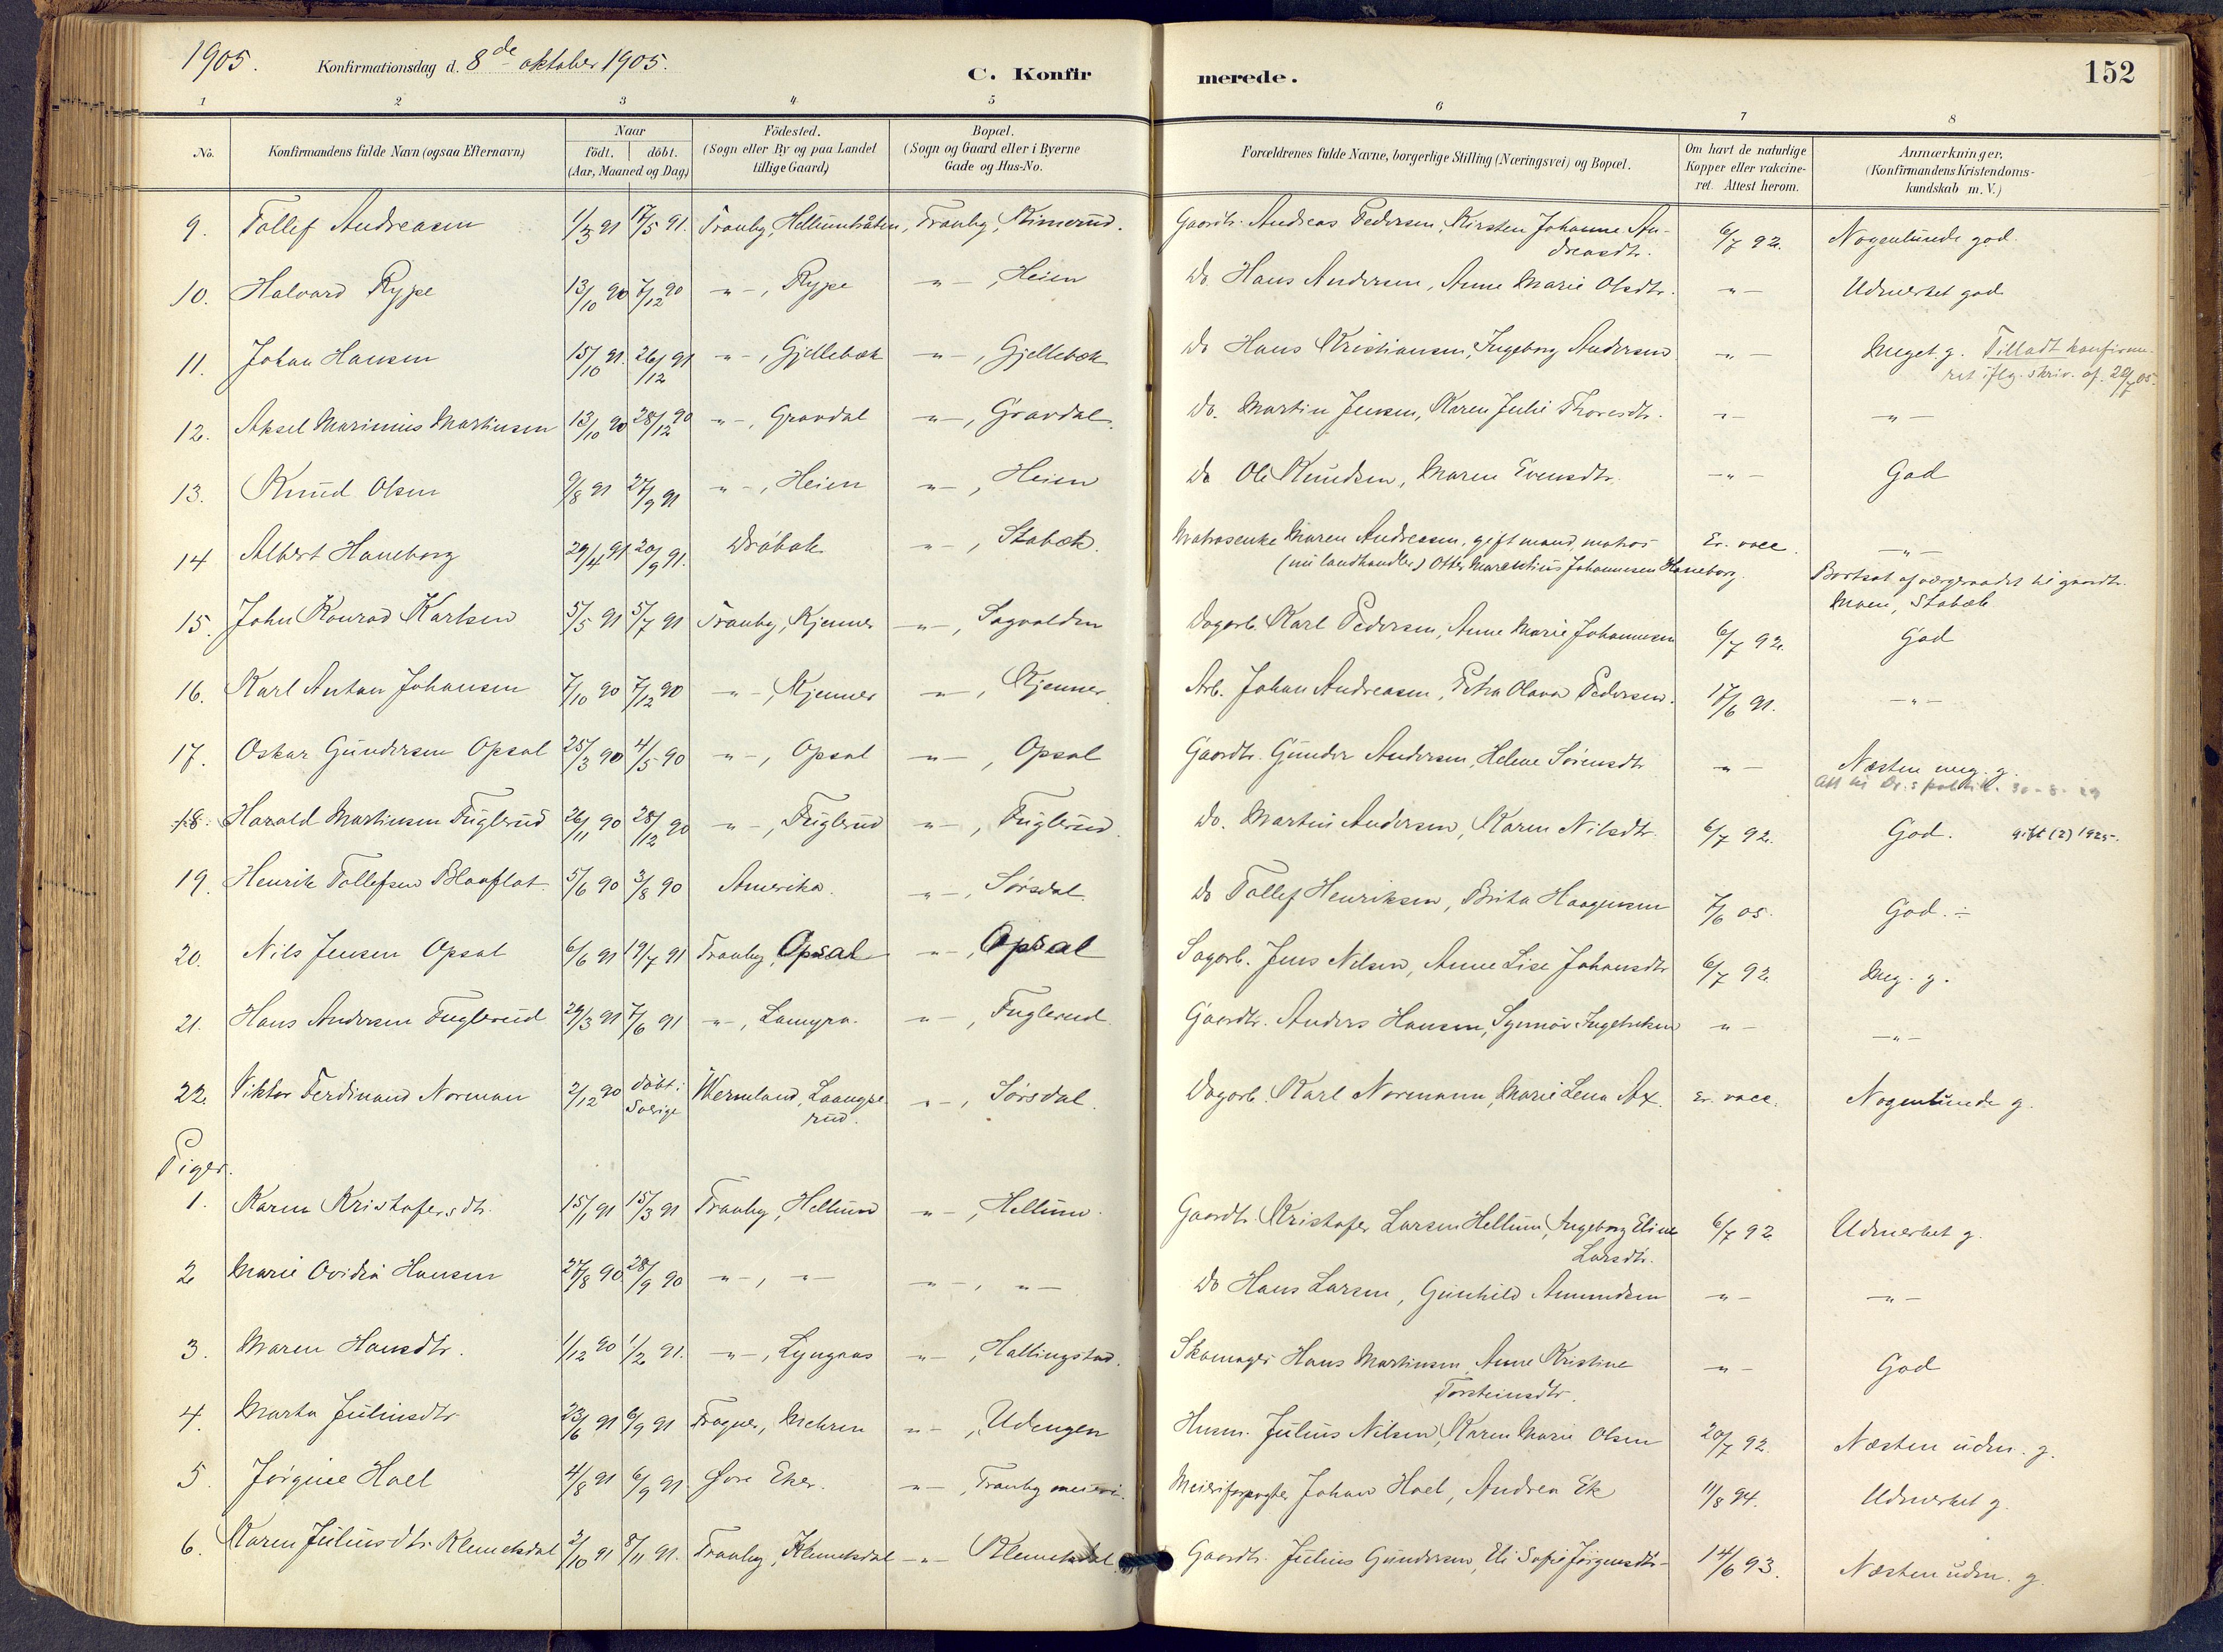 1905. Konfirmationsdag d. 8de oktober 1905. C. Konfirmerede. 152
1 2 3 4 5 6 7 8
No. Konfirmandens fulde Navn (ogsaa Efternavn) Naar født. døbt. (Aar, Maaned og Dag) Födested. (Sogn eller By og paa Landet tillige Gaard) Bopæl. (Sogn og Gaard eller i Byerne Gade og Hus-No. Forældrenes fulde Navne, borgerlige Stilling (Næringsvei) og Bopæl. Om havt de naturlige Kopper eller vakcineret. Attest herom. Anmærkninger, (Konfirmandens Kristendomskundskab m. V.)
9. Tollef Andreasen 1/3 91 17/5 91. Tranby, Hellumbråten, Tranby, Kimerud. Gaardbr. Andreas Pedersen, Kirsten Johanne An-
dreasdtr. 6/7 92. Nogenlunde god.
10. Halvard Rype 13/10 90 7/12 90 -"-, Rype -"-, Heien Do. Hans Andersen, Anne Marie Olsdtr. -"- Udmerket god
11. Johan Hansen 15/10 91. 26/12 91 -"-, Gjellebæk -"-, Gjellebæk Do Hans Kristiansen, Ingeborg Andersen -"- Meget g. Tilladt konfirme-
ret iflg. skriv. af 20/7 05.
12. Aksel Marinius Martinsen 13/10 90 28/12 90 -"-, Gravdal -"-, Gravdal. Do. Martin Jensen, Karen Julie Thoresdtr. -"- -"-
13. Knud Olsen 9/8 91 27/9 91 -"-, Heien -"-, Heien Do Ole Knudsen, Maren Evensdtr. -"- God
14 Albert Haneborg 29/4 91 20/9 91. Drøbak -"-, Stabæk. Matrosenke Maren Andreasen, gift mand, matros Er. vacc. -"-
(nu landhandler) Otter Marentius Johannesen Haneborg. Bortsat af værgeraadet til gaardbr.
Moen, Stabæk
15. John Konrad Karlsen 5/5 91 5/7 91 Tranby, Kjenner -"-, Sagvolden Dagarb. Karl Pedersen, Anne Marie Johannesen 6/7 92. God
16. Karl Anton Johansen 7/10 90 7/12 90 -"-, Kjenner -"-, Kjenner. Arb. Johan Andreasen, Petra Olava Pedersen. 17/6 91. -"-
17. Oskar Gundersen Opsal 25/3 90 4/5 90 -"-, Opsal -"-, Opsal Gaardbr. Gunder Andersen, Helene Sørensdtr -"- Næsten meg. g.
18. Harald Martinsen Fuglerud 26/11 90 28/12 90 -"-, Fuglerud -"-, Fuglerud. Do. Martin Andersen, Karen Nilsdtr. 6/7 92. God. gift (2) 1925.
19. Henrik Tollefsen Blaaflat 5/6 90 3/8 90 Amerika. -"-, Sørsdal. Do Tollef Henriksen, Brita Haagensen 7/6 05. God. ÷
20. Nils Jensen Opsal 6/6 91 19/7 91 Tranby, Opsal -"-, Opsal Sagarb. Jens Nilsen, Anne Lise Johansdtr 6/7 92. Meg. g.
21. Hans Andersen Fuglerud 29/3 91 7/6 91 -"-, Lamyra. -"-, Fuglerud. Gaardbr. Anders Hansen, Synnøv Ingebriksen -"- -"-
22. Viktor Ferdinand Norman 2/12 90 døbt i Sverige Wermland, Laange-
rud. -"-, Sørsdal. Dagarb. Karl Normann, Marie Lena Ax. Er. vacc. Nogenlunde g.
Piger.
1. Karen Kristofersdtr. 15/1 91 15/3 91 Tranby, Hellum -"-, Hellum. Gaardbr. Kristofer Larsen Hellum, Ingeborg Eline
Larsdtr. 6/7 92 Udmerket g.
2 Marie Ovidia Hansen 27/8 90 28/9 90 -"-, -"- -"-, -"- Do Hans Larsen, Gunhild Amundsen -"- -"-
3. Maren Hansdtr. 1/12 90 1/2 91. -"-, Lyngaas -"-, Hallingstad. Skomager Hans Martinsen, Anne Kristine
Torsteinsdtr. -"- God
4. Marta Juliusdtr 23/6 91 6/9 91 Fragner, Mehren -"-, Udengen Husm. Julius Nilsen, Karen Marie Olsen 20/7 92. Næsten udm. g.
5 Jørgine Hoel 4/8 91 6/9 91. Øvre Eker. -"-, Tranby meieri. Meieriforpagter Johan Hoel, Andrea Ek 11/8 94. Udmerket g.
6. Karen Juliusdtr. Klemetsdal 2/10 91 8/11 91. Tranby, Klemetsdal -"- Klemetsdal. Gaardbr. Julius Gundersen, Eli Sofie Jørgensdtr. 14/6 93. Næsten udm. g.